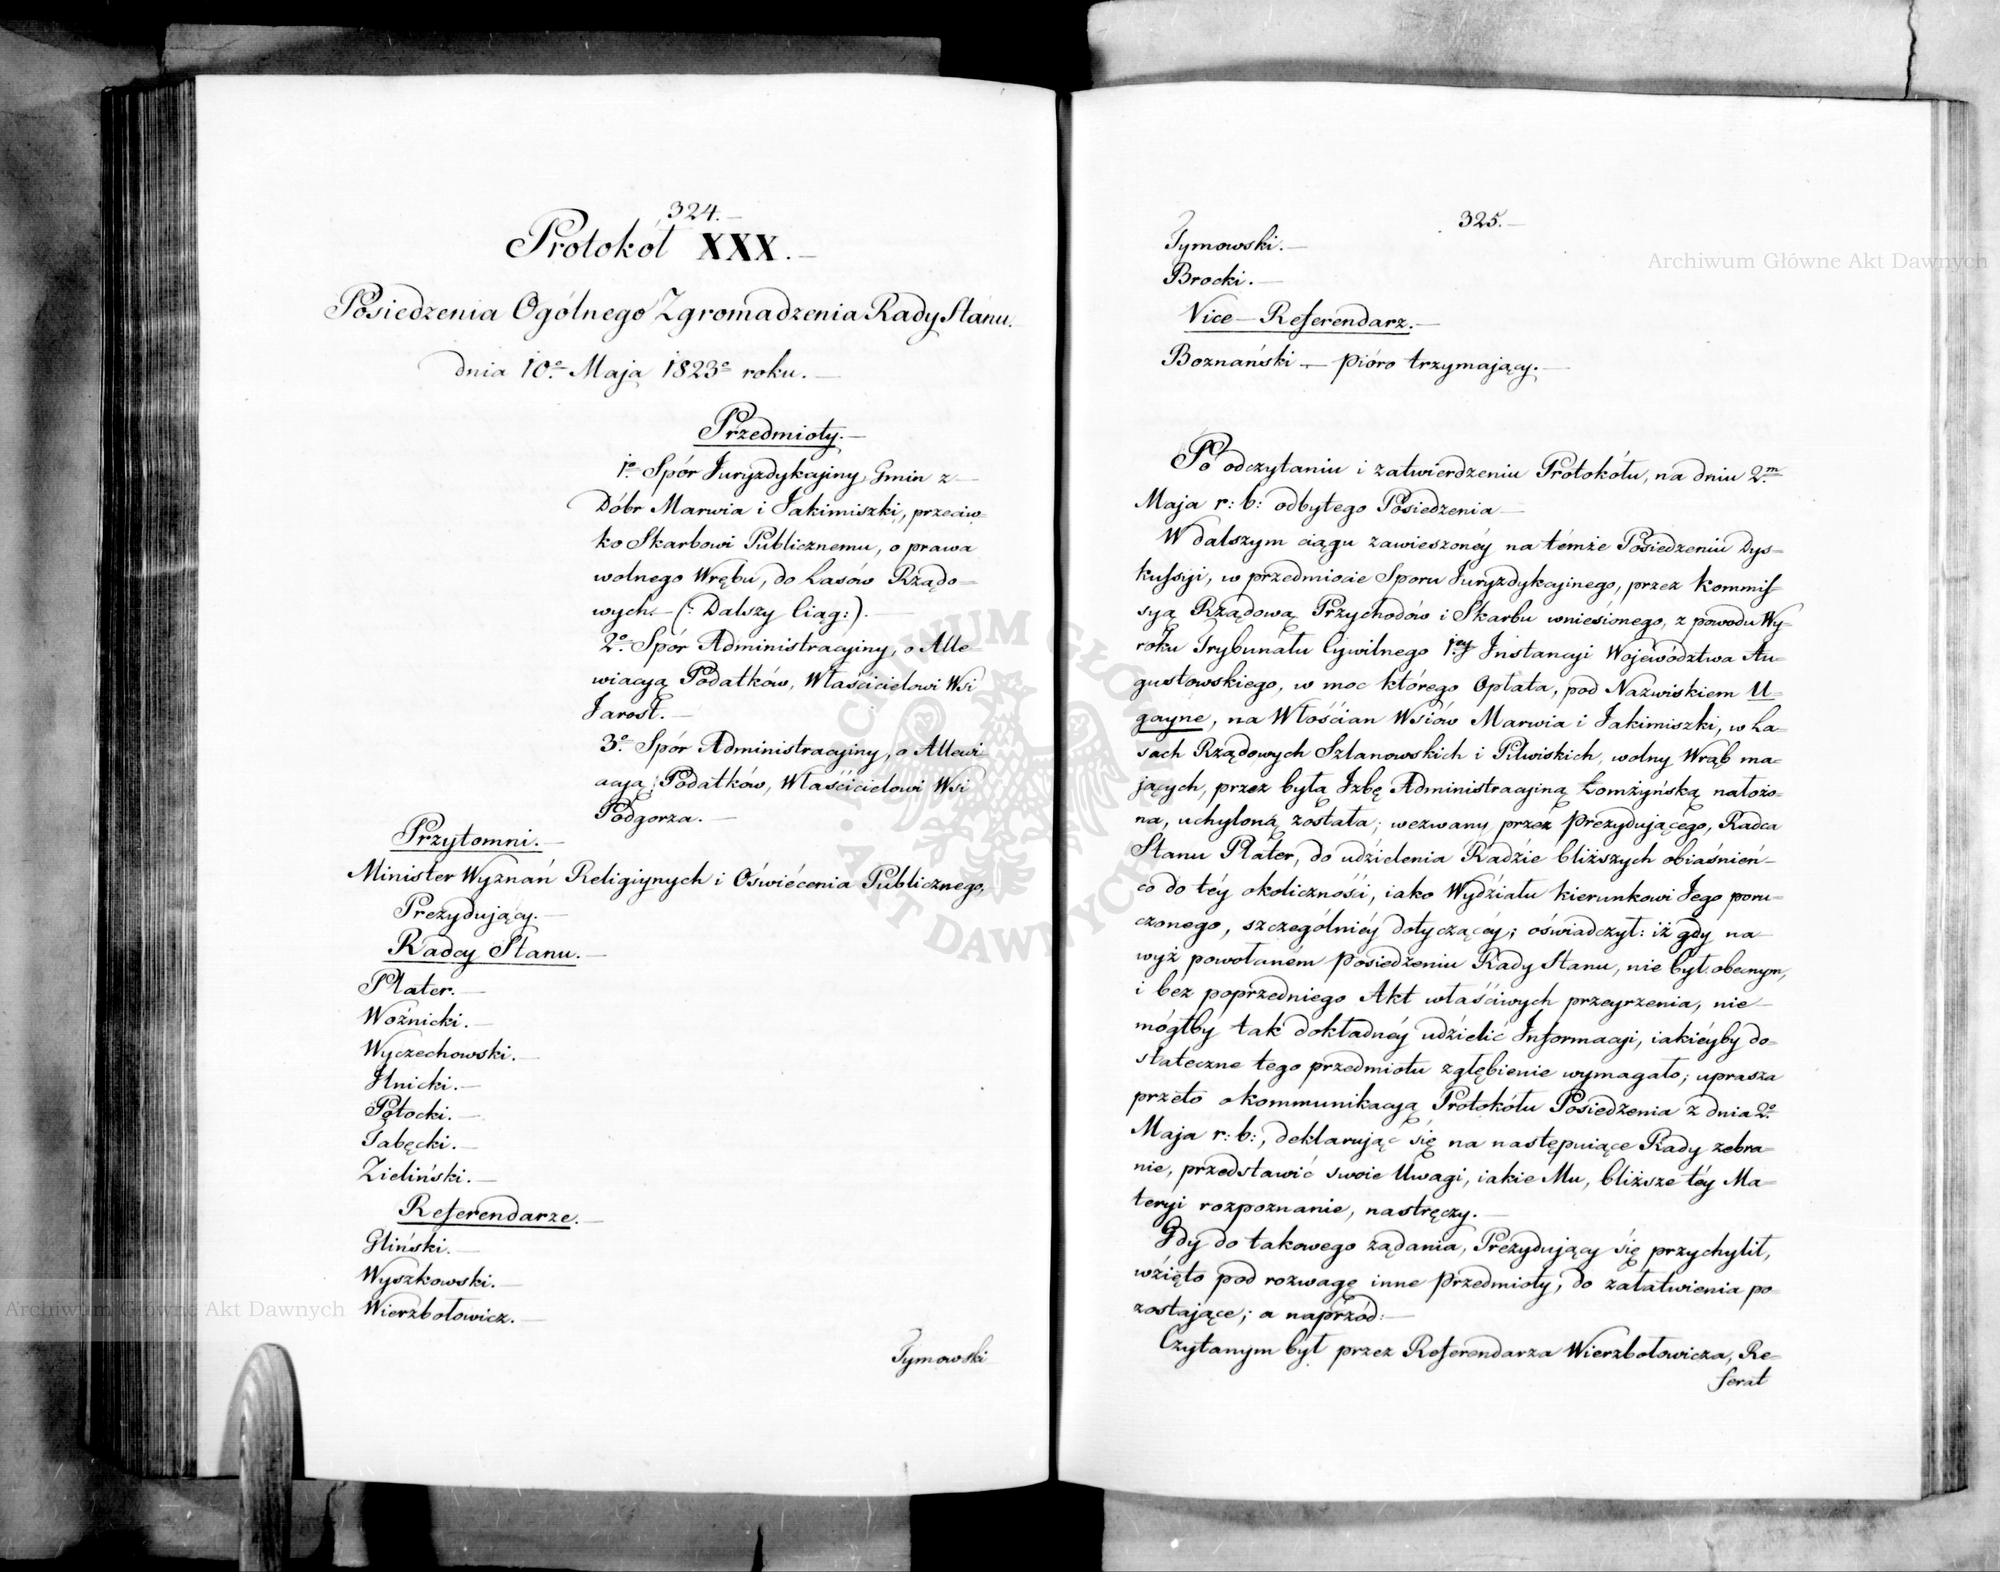 324.—
Protokół XXX.—
Posiedzenia Ogólnego Zgromadzenia Rady Stanu.
dnia 10.º Maja 1823º roku.—
Przedmioty.—
1º Spór Juryzdykcyiny, Gmin z—
Dóbr Marwia i Jakimiszki, przeciw=
ko Skarbowi Publicznemu, o prawa
wolnego Wrębu, do Lasów Rządo=
wych.—(: Dalszy Ciąg:).
2º Spór Administracyiny, o Alle=
wiacyą Podatków, Właścicielowi Wsi
Jarosł.—
3º Spór Administracyiny, o Allewi=
acyą Podatków, Właścicielowi Wsi
Podgorza.—
Przytomni.—
Minister Wyznań Religiynych i Oświécenia Publicznego,
Prezydujący.—
Radcy Stanu.—
Plater.—
Woźnicki.—
Wyczechowski.—
Jlnicki.—
Potocki.—
Tabęcki.—
Zieliński.—
Referendarze.—
Gliński.—
Wyszkowski.—
Wierzbołowicz.—
Tymowski
325.—
Tymowski.—
Brocki.—
Vice—Referendarz.—
Boznański — pióro trzymający.—
Po odczytaniu i zatwierdzeniu Protokółu, na dniu 2.m
Maja r: b: odbytego Posiedzenia—
W dalszym ciągu zawieszonéy na témże Posiedzeniu Dys=
kussyi, w przedmiocie Sporu Juryzdykcyinego, przez Kommis=
syą Rządową Przychodów i Skarbu wniesionego, z powodu Wy=
roku Trybunału Cywilnego 1éy Jnstancyi Województwa Au=
gustowskiego, w moc którego Opłata, pod Nazwiskiem U=
gayne, na Włościan Wsiów Marwia i Jakimiszki, w La=
sach Rządowych Szlanowskich i Pilwiskich, wolny Wrąb ma=
jących, przez byłą Jzbę Administracyiną Łomżyńską nałożo=
na, uchyloną została; wezwany przez Prezydującego, Radca
Stanu Plater, do udzielenia Radzie bliższych obiaśnień—
co do téy okoliczności, iako Wydziału kierunkowi Jego poru=
czonego, szczególniéy dotyczącéy; oświadczył: iż gdy na—
wyż powołaném Posiedzeniu Rady Stanu, nie był obecnym,
i bez poprzedniego Akt właściwych przeyrzenia, nie—
mógłby tak dokładnéy udzielić Jnformacyi, iakiéyby do=
stateczne tego przedmiotu zgłębienie wymagało; uprasza
przeto o kommunikacyą Protokółu Posiedzenia z dnia 2º
Maja r: b:, deklarując się na następuiące Rady zebra=
nie, przedstawić swoie Uwagi, iakie Mu, bliższe téy Ma=
teryi rozpoznanie, nastręczy.—
Gdy do takowego żądania, Prezydujący się przychylił,
wzięto pod rozwagę inne Przedmioty, do załatwienia po=
zostające; a naprzód:—
Czytanym był przez Referendarza Wierzbołowicza, Re=
ferat
Archiwum Główne Akt Dawnych
Archiwum Główne Akt Dawnych
ARCHIWUM GŁÓWNE AKT DAWNYCH